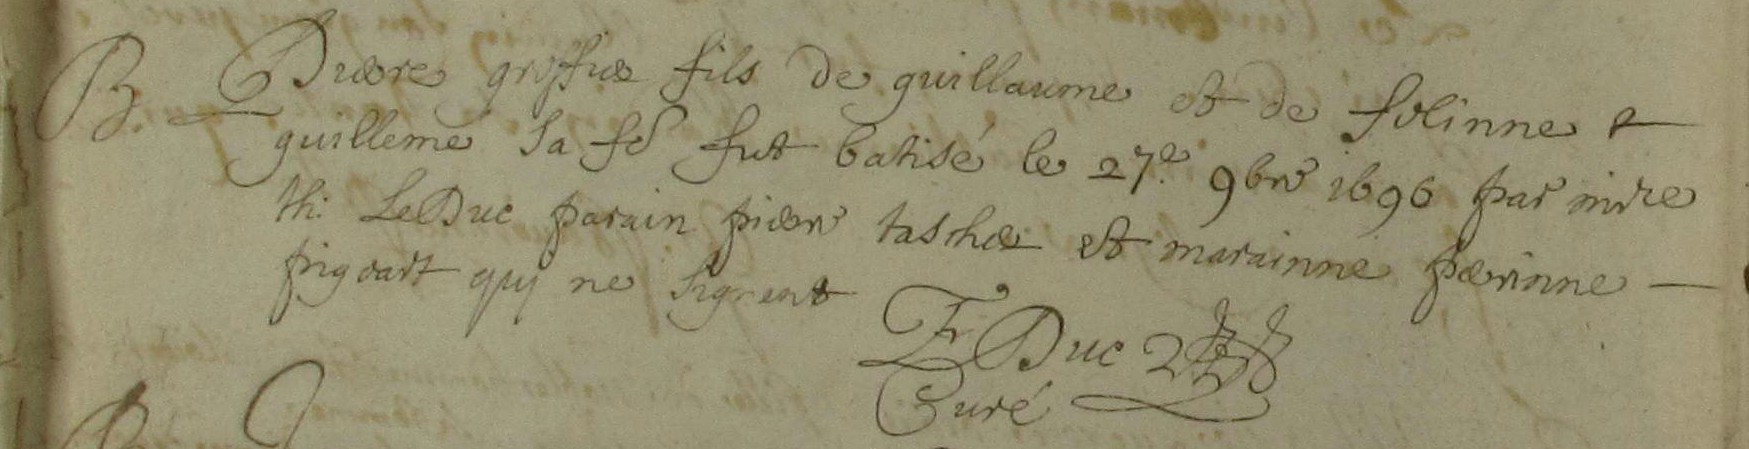 B. Pierre groffier fils de guillaume et de felinne
guilleme sa fe fut batisé le 27.e 9bre 1696 par mire
th: LeDuc parain pierre taschee et marainne perinne —
prigeart quy ne signent
LeDuc
Curé